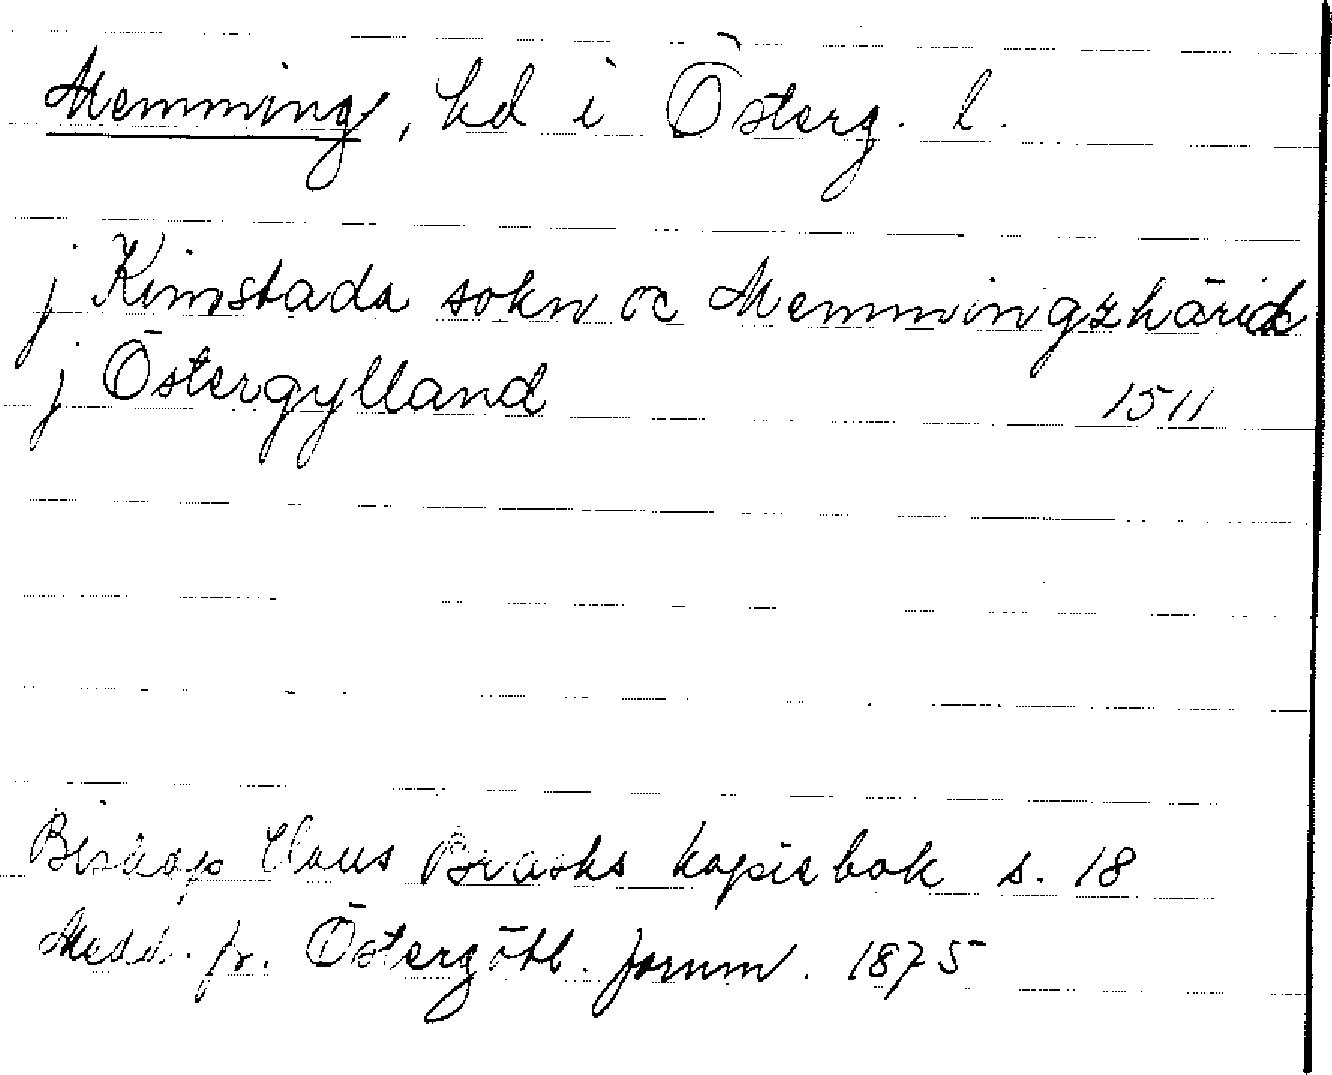 Memming, hd i Österg. l.
j Kimstada sokn oc Memmingzhäridc
j Östergylland 1511
Biskop Claus Brasks kopiebok s. 18
Medd. fr. Östergötl. fornm. 1875